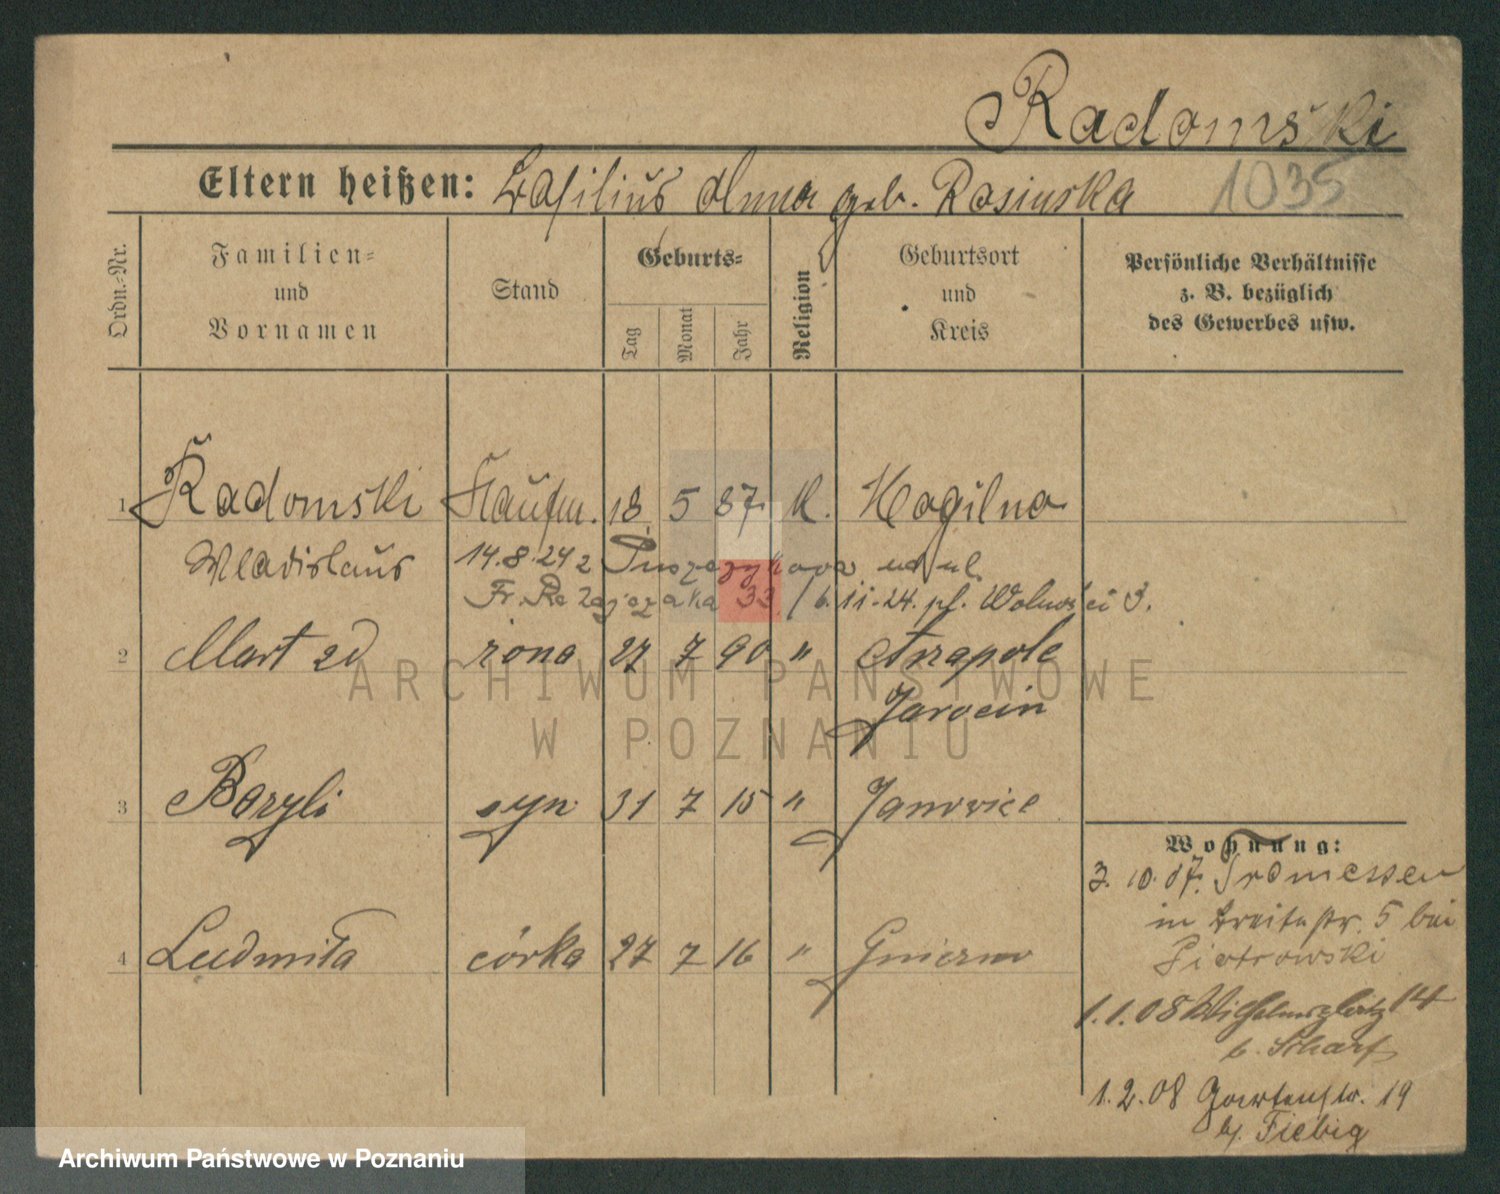 Radomski
Eltern heißen: Basilius Anna geb. Rosinska 1035
Ordn.-Nr.
Familien-
und
Vornamen
Stand
Geburts-
Tag
Monat
Jahr
Religion
Geburtsort
und
Kreis
Persönliche Verhältnisse
z. B. bezüglich
des Gewerbes usw.
1 Radomski Kaufm. 18. 5 87. K. Mogilno
Wladislaus 14.8.24 z Puszczykowa
Fr. Ratajczaka 33 / 6.11.24. pl. Wolności 3.
2 żona 27 7 90 "
Jarocin
3 Bazyli syn 31 7 15 " Janowice
4 Ludmiła córka 27 7 16 " Gniezno
Wohnung:
3. 10. 07. Tremessen
in Breitestr. 5 bei
Piotrowski
1.1.08 Wilhelmsplatz 14
b. Scharf
1.2.08 Gartenstr. 19
b. Fiebig
ARCHIWUM PAŃSTWOWE
W POZNANIU
Archiwum Państwowe w Poznaniu